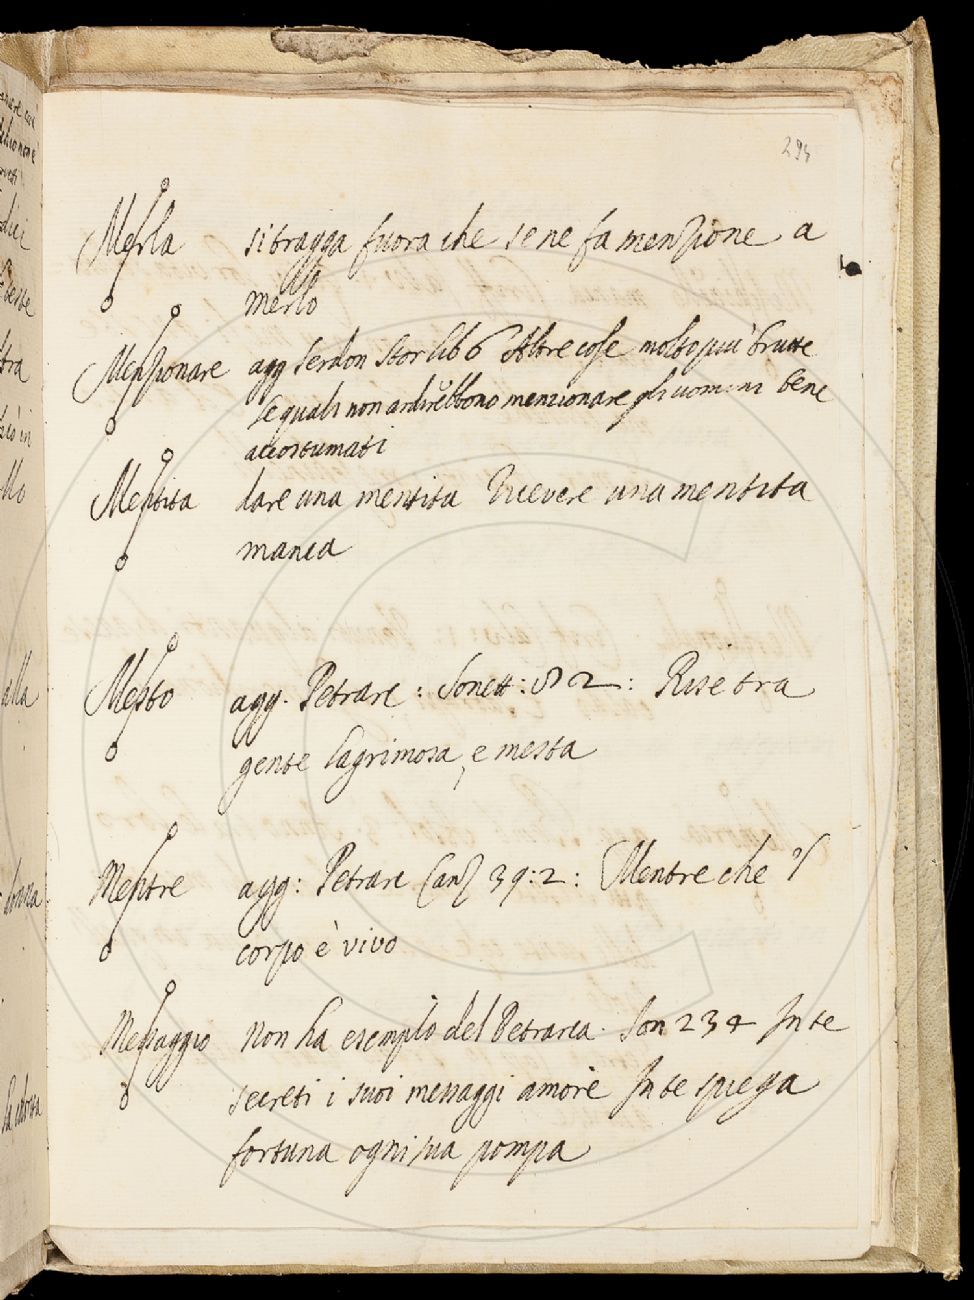 294
Merla si tragga fuora che se ne fa menzione a
merlo
Menzionare agg Serdon Stor lib 6 Altre cose molto più brutte
le quali non ardirebbono menzionare gli uomini bene
accostumati
Mentita dare una mentita Ricevere una mentita
manca
Mesto agg. Petrarc : Sonett : 82 : Rise tra
gente lagrimosa, e mesta
Mentre agg : Petrarc Canz 39 : 2 : Mentre che 'l
corpo è vivo
Messaggio non ha esemplo del Petrarca. Son 234 In te
secreti i suoi messaggi amore In te spiega
fortuna ogni sua pompa